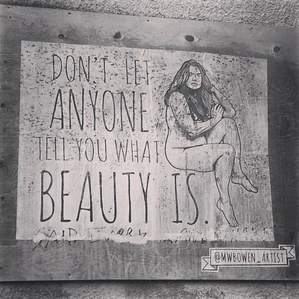 DON'T LET
ANYONE
TELL YOU WHAT
BEAUTY IS.
@MWBOWEN_ARTIST